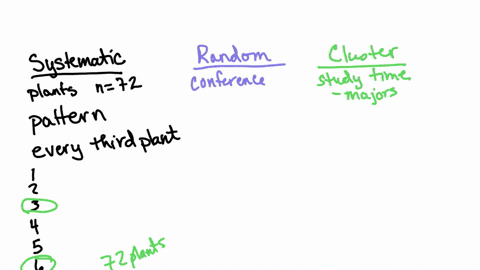 Systematic
plants n=72
pattern
every third plant
1
2
3
4
5
6
72 plants
Random
conference
Cluster
study time
- majors